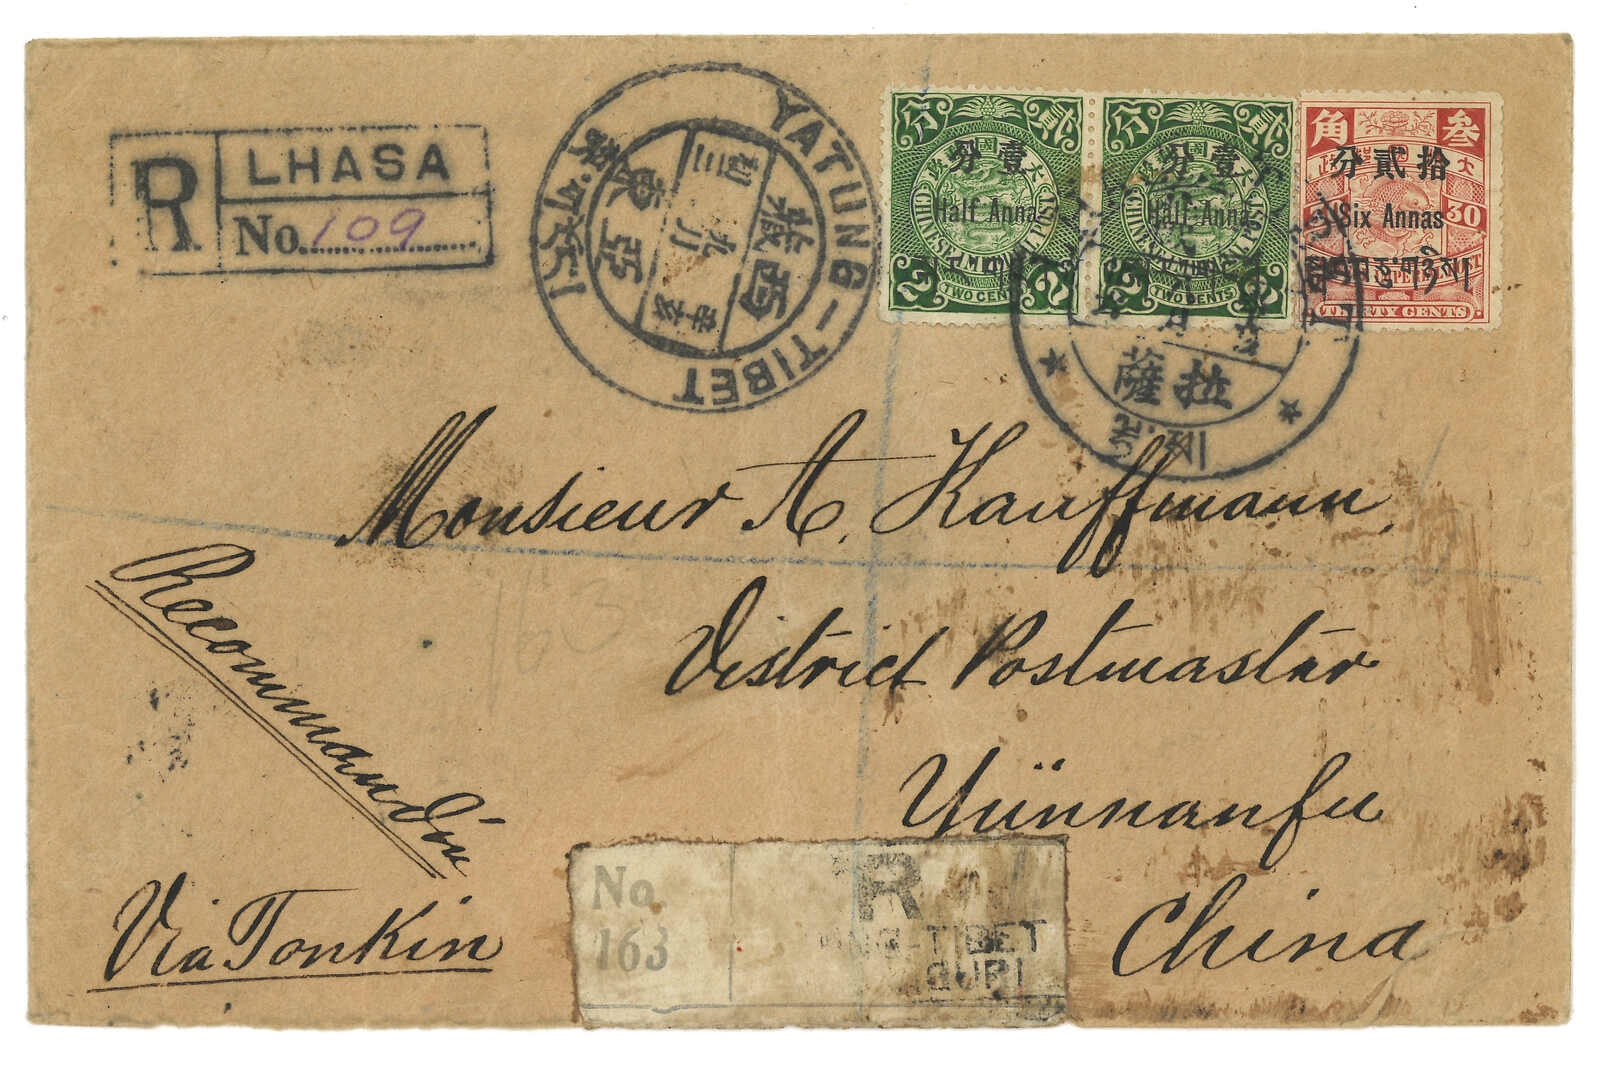 R LHASA
No. 109
YATUNG-TIBET
西藏
亞東
貳分
壹分
Half Anna
CHINESE IMPERIAL POST
2 TWO CENTS 2
貳分
壹分
Half Anna
CHINESE IMPERIAL POST
2 TWO CENTS 2
叁角
拾貳分
Six Annas
30
THIRTY CENTS
拉薩
Monsieur A. Kauffmann,
District Postmaster
Yünnanfu
China
Recommandée
Via Tonkin
No. R
163 NG-TIBET
GURI